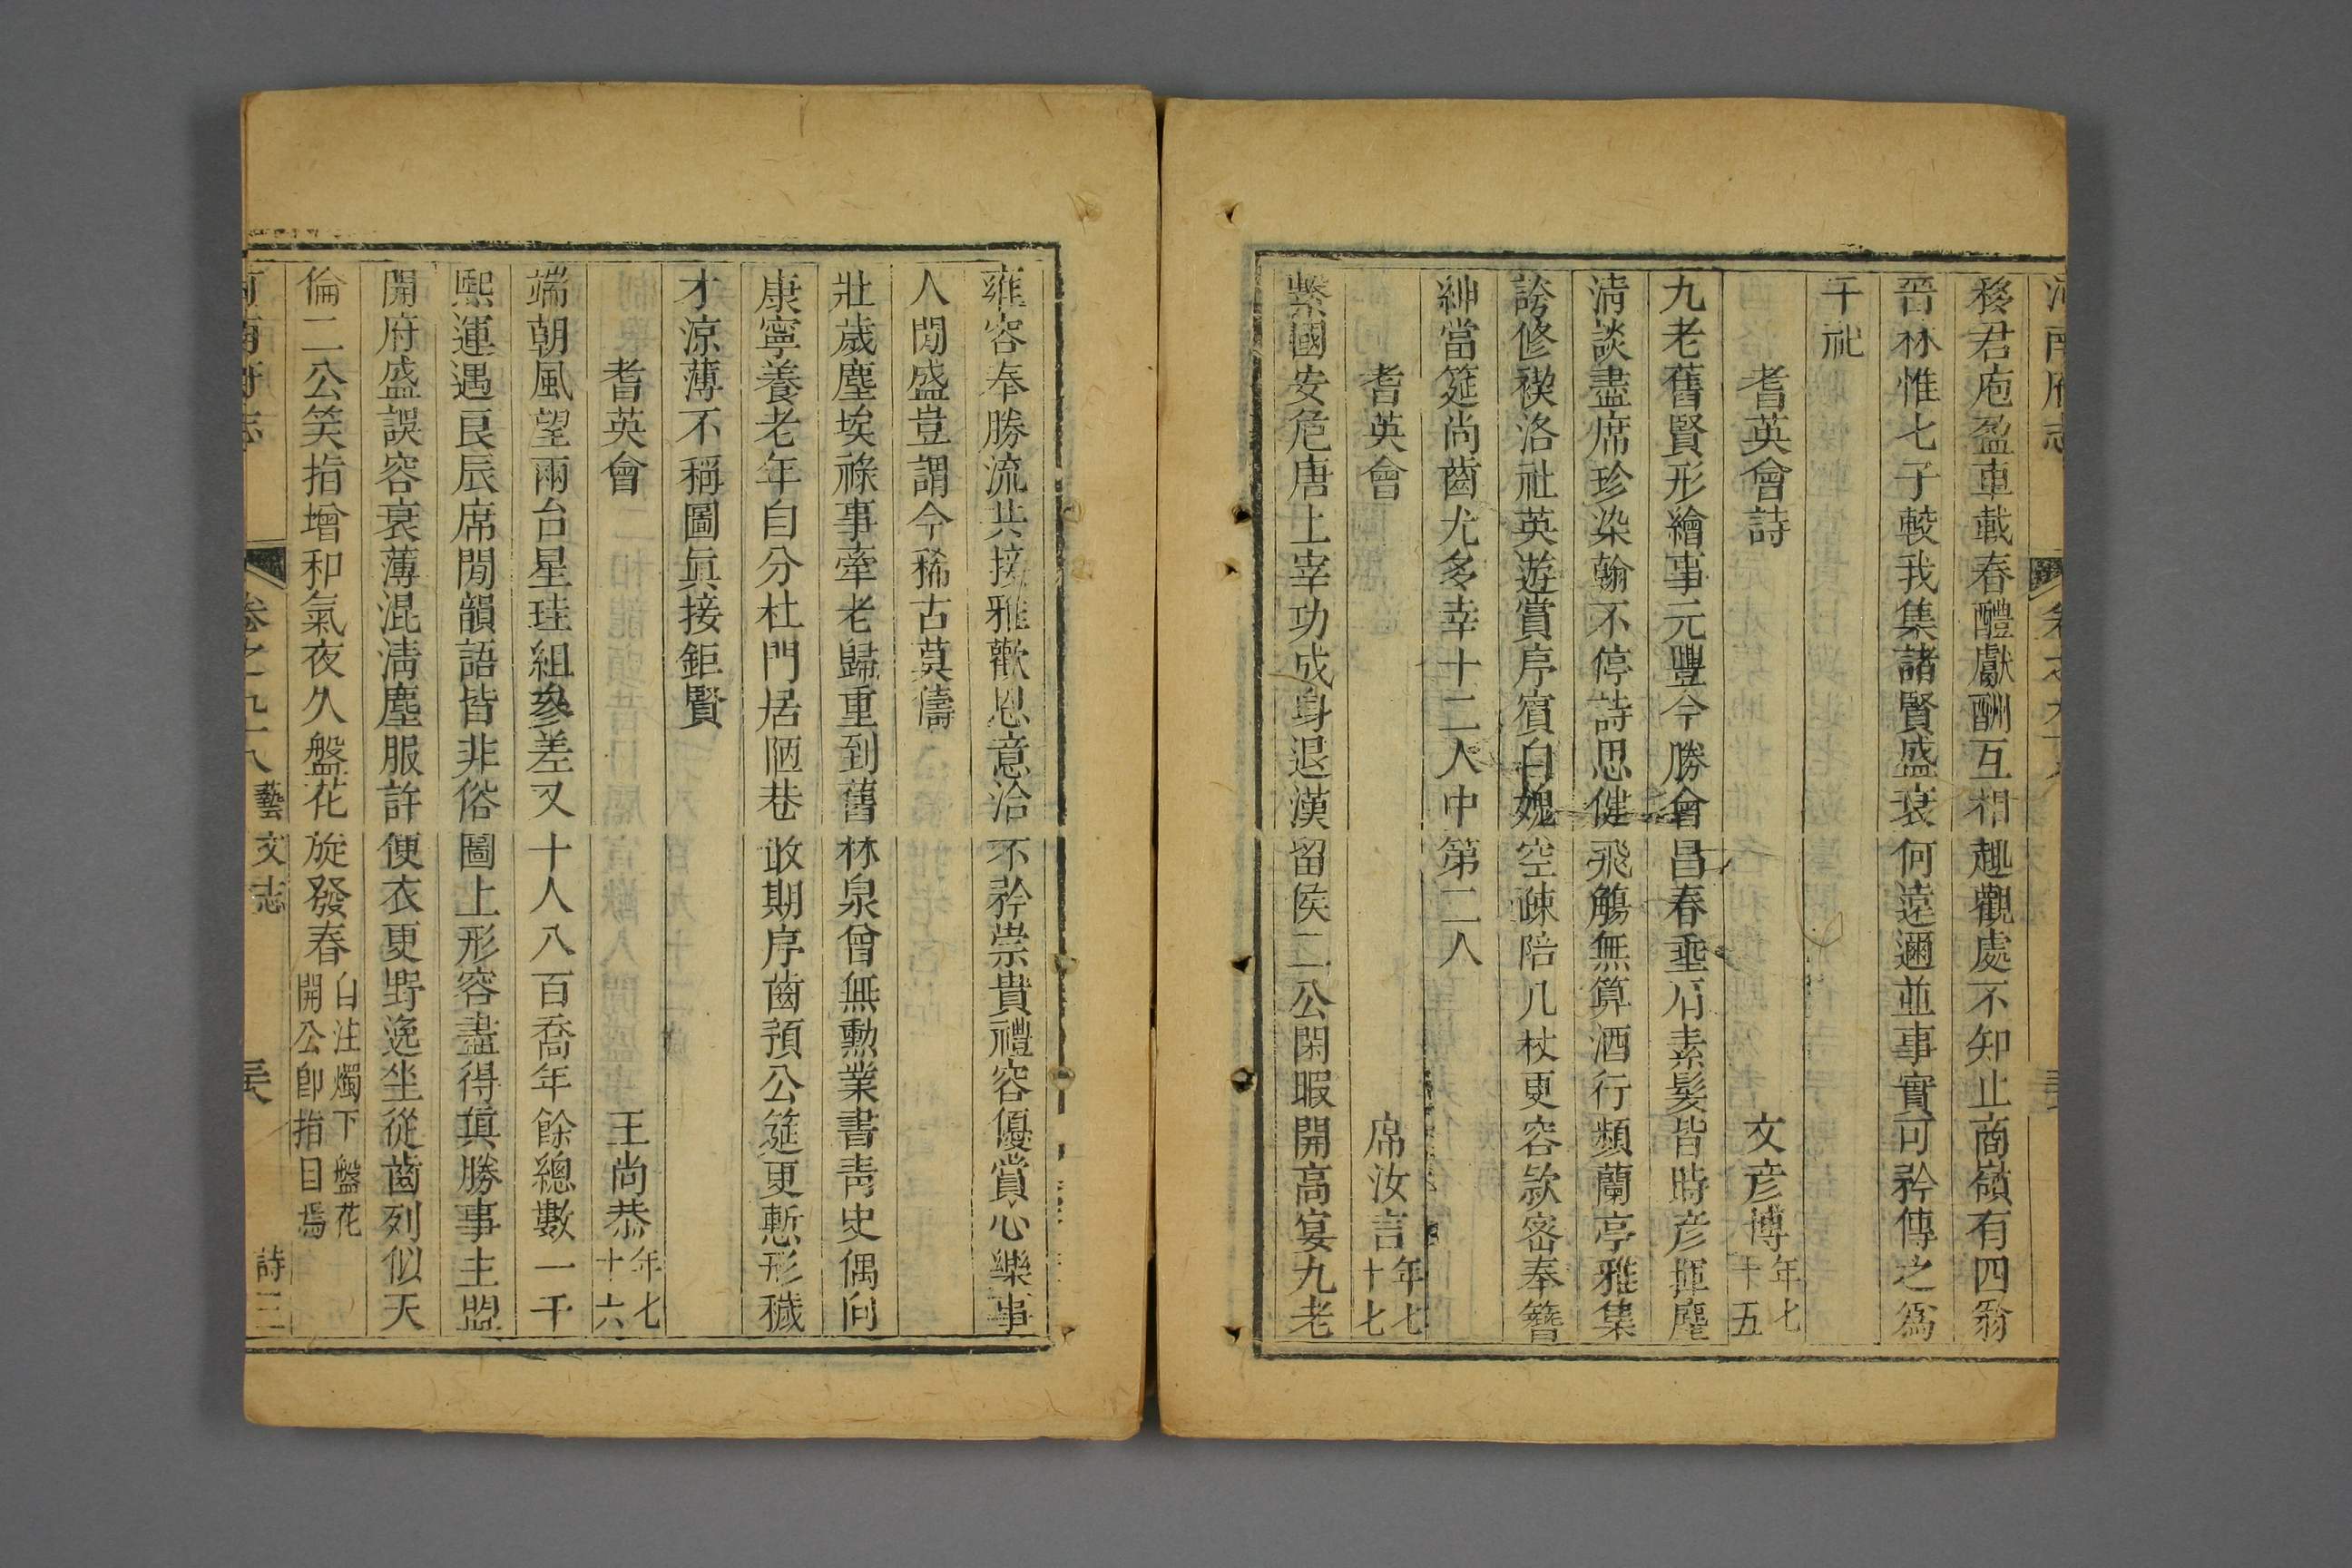 河南府志 卷之九十八
移君庖盈車載春醴獻酬互相趣觀處不知止商嶺有四翁
晉林惟七子較我集諸賢盛衰何遠邇並事實可矜傳之爲
千祀
耆英會詩 文彦博年七十五
九老舊賢形繪事元豐今勝會昌春垂肩素髮皆時彦揮麈
淸談盡席珍染翰不停詩思健飛觴無算酒行頻蘭亭雅集
誇修禊洛社英遊賞序賓自媿空疎陪几杖更容欵密奉簪
紳當筵尚齒尤多幸十二人中第二人
耆英會 席汝言年七十七
繫國安危唐上宰功成身退漢留侯二公閑暇開高宴九老
雍容奉勝流共接雅歡恩意洽不矜崇貴禮容優賞心樂事
人間盛豈謂今稀古莫儔
壯歲塵埃祿事牽老歸重到舊林泉曾無勳業書靑史偶向
康寧養老年自分杜門居陋巷敢期序齒預公筵更慙形穢
才涼薄不稱圖眞接鉅賢
耆英會 王尚恭年七十六
端朝風望兩台星珪組參差又十人八百喬年餘總數一千
熙運遇良辰席閒韻語皆非俗圖上形容盡得眞勝事主盟
開府盛誤容衰薄混淸塵服許便衣更野逸坐從齒列似天
倫二公笑指增和氣夜久盤花旋發春自注燭下盤花開公卽指目焉
河南府志 卷之九十八 藝文志 詩三